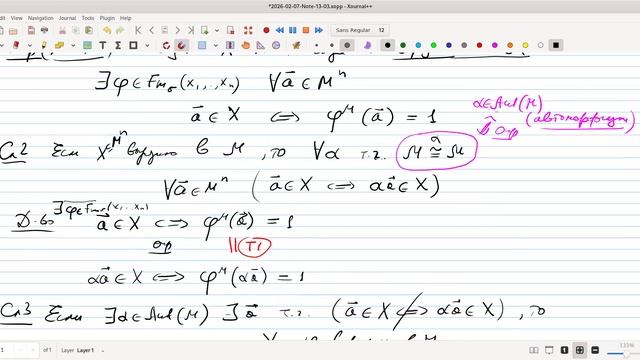 *2026-02-07-Note-13-03.xopp - Xournal++
Edit View Navigation Journal Tools Plugin Help
Sans Regular 12
∃φ∈Fm_σ(x₁,..,xₙ) ∀a⃗∈Mⁿ
a⃗∈X ⇔ φ^M(a⃗)=1
α∈Aut(M)
(автоморфизм)
Опр
Сл2 Если X⊆Mⁿ выразимо в M, то ∀α т.ч. M ≅^α M
∀a⃗∈Mⁿ (a⃗∈X ⇔ αa⃗∈X)
∃φ∈Fm_σ(x₁,..,xₙ)
Д-во a⃗∈X ⇔ φ^M(a⃗)=1
опр || T1
αa⃗∈X ⇔ φ^M(αa⃗)=1
Сл3 Если ∃α∈Aut(M) ∃a⃗ т.ч. (a⃗∈X ⇎ αa⃗∈X), то
1 of 1 Layer Layer 1 133%